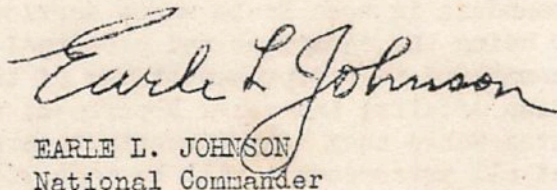 Earle L Johnson
EARLE L. JOHNSON
National Commander